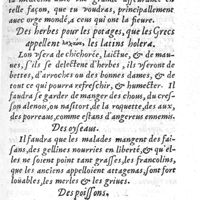 telle façon, que tu voudras, principallement
auec orge mondé, a ceus qui ont la fieure.
Des herbes pour les potages, que les Grecs
appellent les latins holera.
Lon vsera de chichorée, laictue, & de mau-
ues, s'ils se delectent d'herbes, ils vseront de
bettes, d'arroches ou des bonnes dames, & de
tout ce qui pourra refreschir, & humecter. Il
faudra se garder de manger des chous, du cres-
son alenou, ou nasitort, de la roquette, des aux,
des porreaus, comme estans d'angereus ennemis.
Des oyseaus.
Il faudra que les malades mangent des fai-
sans, des gellines nourries en liberté, & qu'el-
les ne soient point tant grasses, les francolins,
que les anciens appelloient attagenas, sont fort
louables, les merles & les griues.
Des poissons.